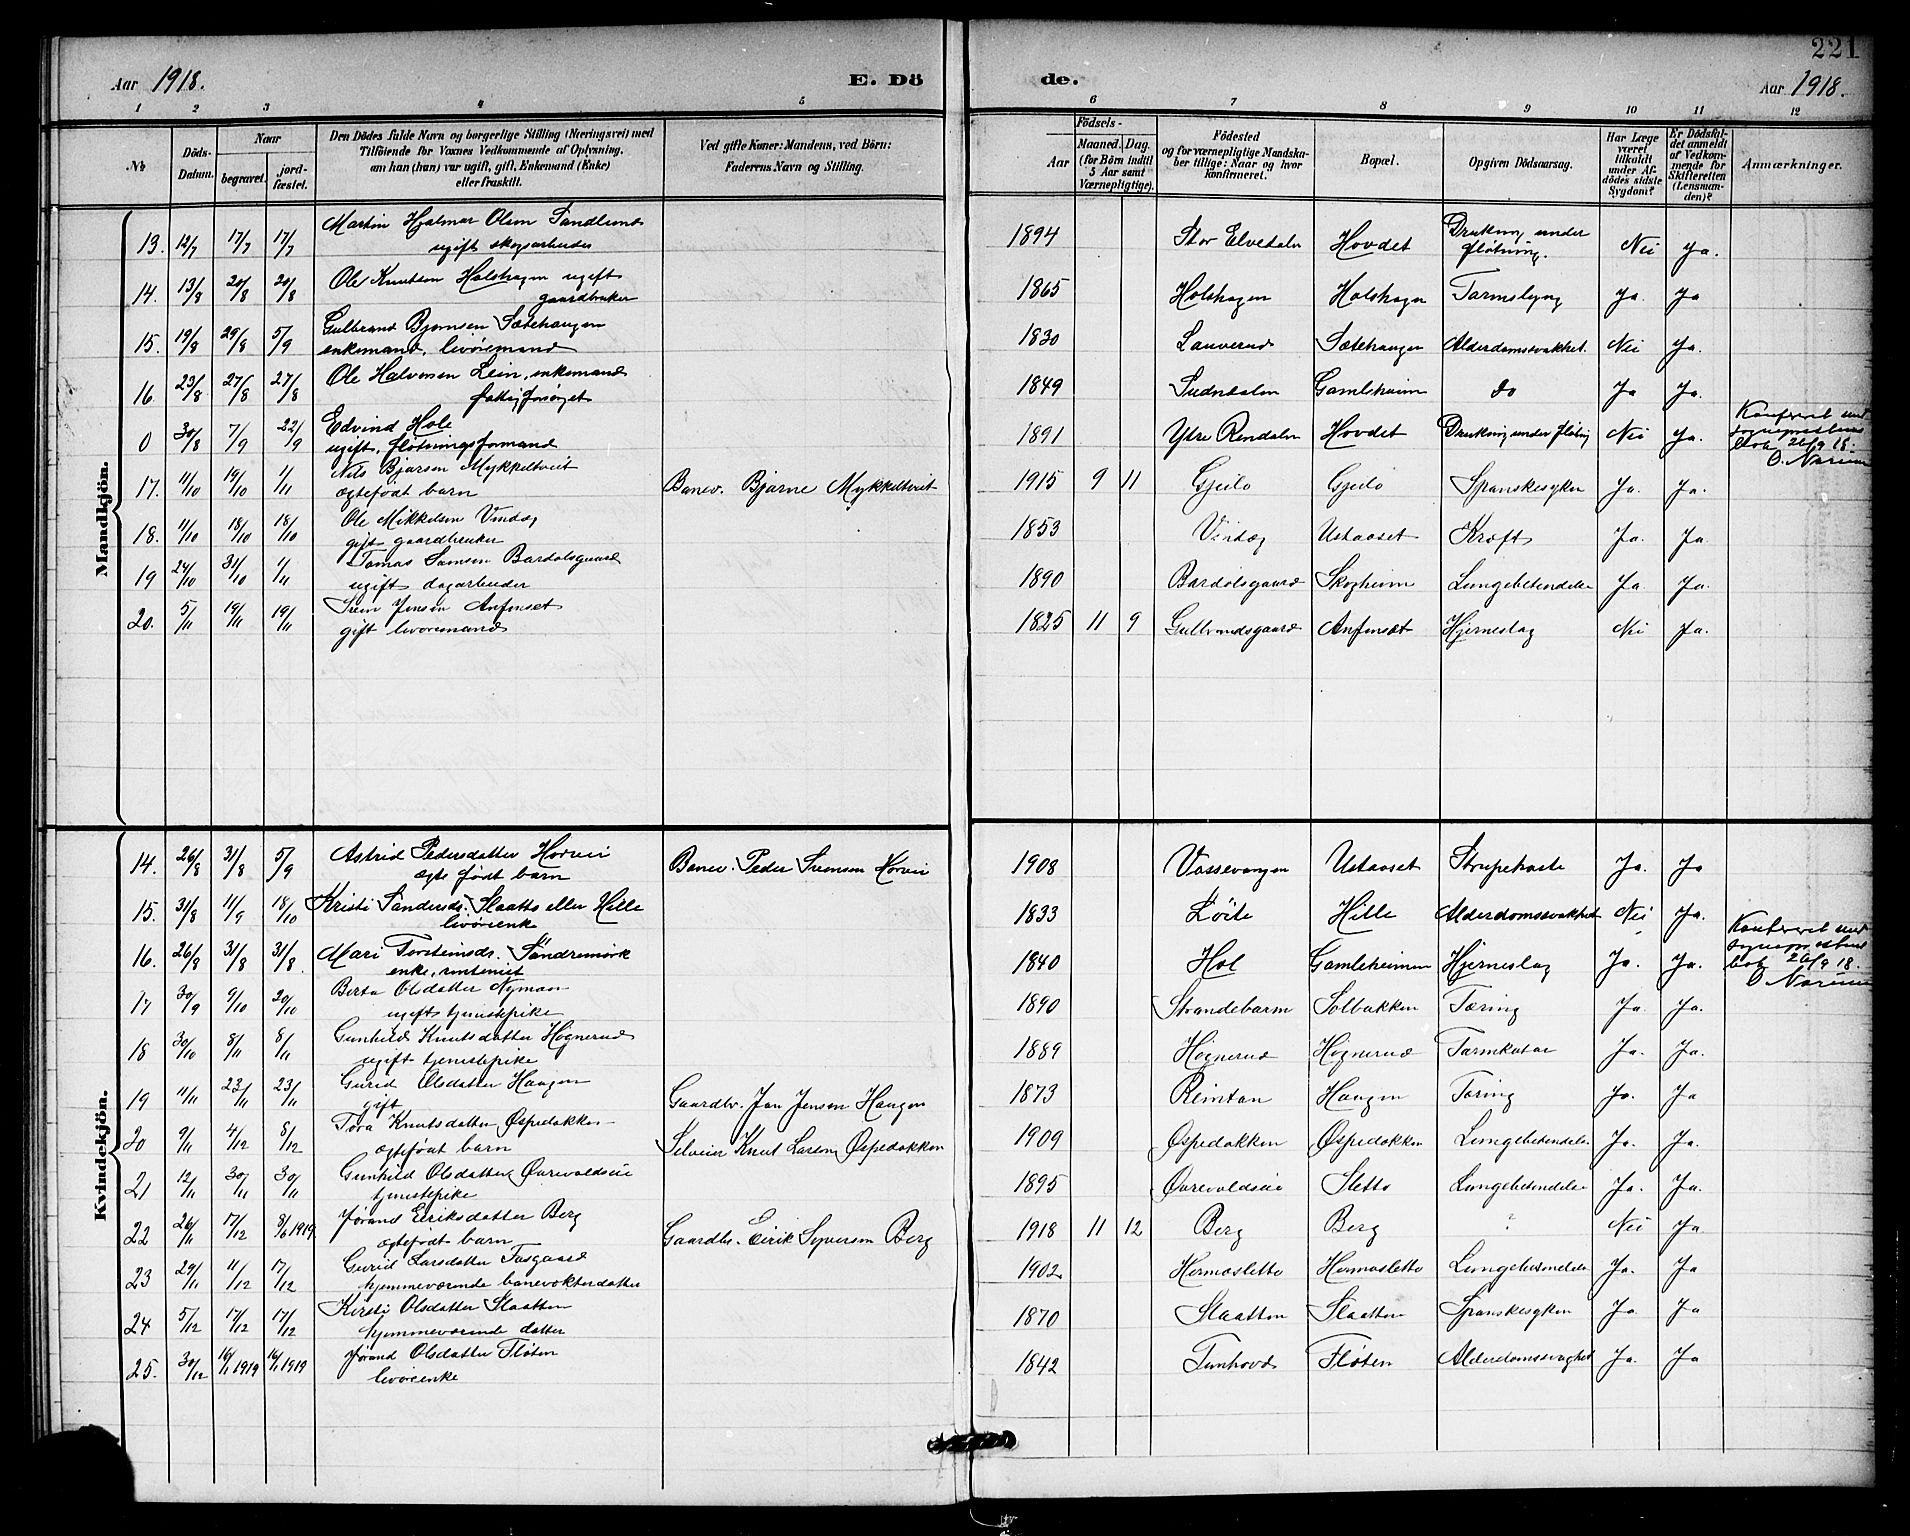 221
Aar 1918. E. Dö de. Aar 1918.
1 2 3 4 5 6 7 8 9 10 11 12
No
Döds-Datum.
Naar begravet. jord-fæstet.
Den Dödes fulde Navn og borgerlige Stilling (Næringsvei) med Tilföiende for Voxnes Vedkommende af Oplysning, om han (hun) var ugift, gift, Enkemand (Enke) eller fraskilt.
Ved gifte Koner: Mandens, ved Börn: Faderens Navn og Stilling.
Födsels-
Aar
Maaned. Dag. (for Börn indtil 5 Aar samt Værnepligtige).
Födested og for værnepligtige Mandskaber tillige: Naar og hvor konfirmeret.
Bopæl.
Opgiven Dödsaarsag.
Har Læge været tilkaldt under Afdödes sidste Sygdom?
Er Dödsfaldet anmeldt af Vedkommende for Skifteretten (Lensmanden)?
Anmærkninger.
Mandkjön.
13. 12/7 17/7 17/7 Martin Hjalmar Olsen Sandlund 1894 Stor Elvedalen Hovdet Drukning under Nei Ja.
ugift skogsarbeider fløtning.
14. 13/8 20/8 20/8 Ole Knutsen Holshagen ugift 1865 Holshagen Holshagen Tarmslyng Ja. Ja
gaardbruker
15. 19/8 29/8 5/9 Gulbrand Bjørnsen Sætehaugen 1830 Lauverud Sætehaugen Alderdomssvakhet. Nei Ja.
enkemand, livøremand
16. 23/8 27/8 27/8 Ole Halvorsen Lein, enkemand 1849 Sudndalen Gamleheim do Ja Ja.
fattigforsørget
0 30/8 7/9 22/9 Edvind Hole 1891 Ytre Rendalen Hovdet Drukning under fløtning Nei Ja. Konferert med sogneprestens bok 26/9 18. O. Norum
ugift, fløtningsformand
17. 11/10 19/10 1/11 Nils Bjarsen Mykkeltveit Banev. Bjarne Mykkeltveit 1915 9 11 Gjeilo Gjeilo Spanskesyken Ja. Ja.
egtefødt barn
18. 11/10 18/10 18/10 Ole Mikkelsen Vindeg 1853 Vindeg Ustaoset Kræft Ja. Ja.
gift gaardbruker
19 24/10 31/10 1/11 Tomas Samsen Bardolsgaard 1890 Bardolsgaard Skogheim Lungebetendelse Ja. Ja.
ugift dagarbeider
20. 5/11 19/11 19/11 Svein Jensen Anfinset 1825 11 9 Gulbrandsgaard Anfinset Hjerneslag Nei Ja.
gift livøremand
Kvindekjön.
14. 26/8 31/8 5/9 Astrid Pedersdatter Horvei Banev. Peder Svensen Horvei 1908 Vossevangen Ustaoset Strupehoste Ja. Ja
egte født barn
15. 31/8 11/9 18/10 Kristi Sandersd. Slaatto eller Hille 1833 Løite Hille Alderdomssvakhed Nei Ja.
livørenke
16. 26/8 31/8 31/8. Mari Torsteinsds. Søndremørk 1840 Hol Gamleheimen Hjerneslag Ja. Ja. Konferert med sogneprestens bok 26/9 18. O Norum
enke, rentenist
17 30/9 9/10 20/10 Berta Olsdatter Nyman 1890 Strandebarm Solbakken Tæring Ja Ja.
ugift tjenestepike
18 30/10 8/11 8/11 Gunhild Knutsdatter Høgnerud 1889 Høgnerud Høgnerud Tarmkatar Ja. Ja.
ugift tjenestepike
19 11/11 23/11 23/11 Gurid Olsdatter Haugen Gaardbr. Jan Jensen Haugen 1873 Reintan Haugen Tæring Ja. Ja
gift
20 9/11 4/12 8/12 Tora Knutsdatter Øspedokken Selveier Knut Larsen Øspedokken 1909 Øspedokken Øspedokken Lungebetendelse Ja. Ja.
egtefødt barn
21 12/11 30/11 30/11 Gunhild Olsdatter Øvrevoldseie 1895 Øvrevoldseie Sletto Lungebetendelse Ja. Ja.
tjenestepike
22 26/11 17/12 8/6 1919. Jørand Eiriksdatter Berg Gaardbr. Eirik Syversen Berg 1918 11 12 Berg Berg ? Nei Ja
egtefødt barn
23 29/11 11/12 17/12 Gurid Larsdatter Tufsgaard 1902. Hermosletto Hermosletto Lungebetendelse Ja. Ja
hjemmeværende banevokterdatter
24 5/12 17/12 17/12 Kirsti Olsdatter Slaatten 1870 Slaatten Slaatten Spanskesyken Ja. Ja
hjemmeværende datter
25. 30/12 16/1 1919 16/1 1919 Jørand Olsdatter Fløten 1842 Tunhovd Fløten Alderdomssvaghet Ja. Ja
livørenke